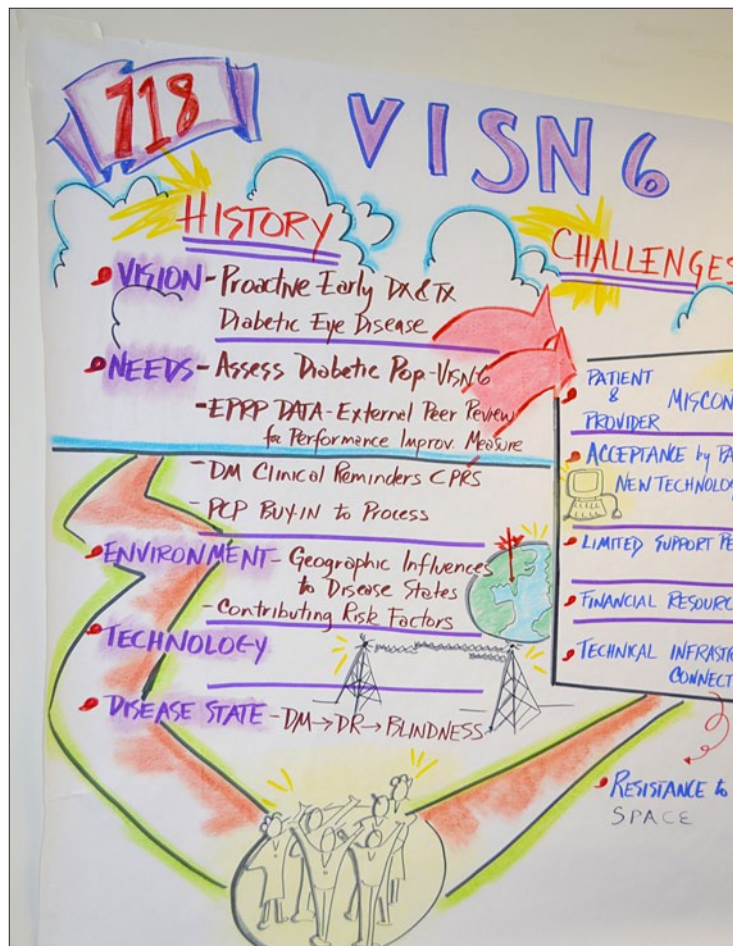 718
VISN 6
HISTORY
VISION - Proactive Early DX & TX
Diabetic Eye Disease
NEEDS - Assess Diabetic Pop. - VISN 6
- EPRP DATA - External Peer Review
for Performance Improv. Measure
- DM Clinical Reminders CPRS
- PCP BUY-IN to PROCESS
ENVIRONMENT - Geographic Influences
to Disease States
- Contributing Risk Factors
TECHNOLOGY
DISEASE STATE - DM → DR → BLINDNESS
CHALLENGES
PATIENT
&
PROVIDER MISCON
ACCEPTANCE by PA
NEW TECHNOLOG
LIMITED SUPPORT PE
FINANCIAL RESOURC
TECHNICAL INFRASTR
CONNECT
RESISTANCE to
SPACE